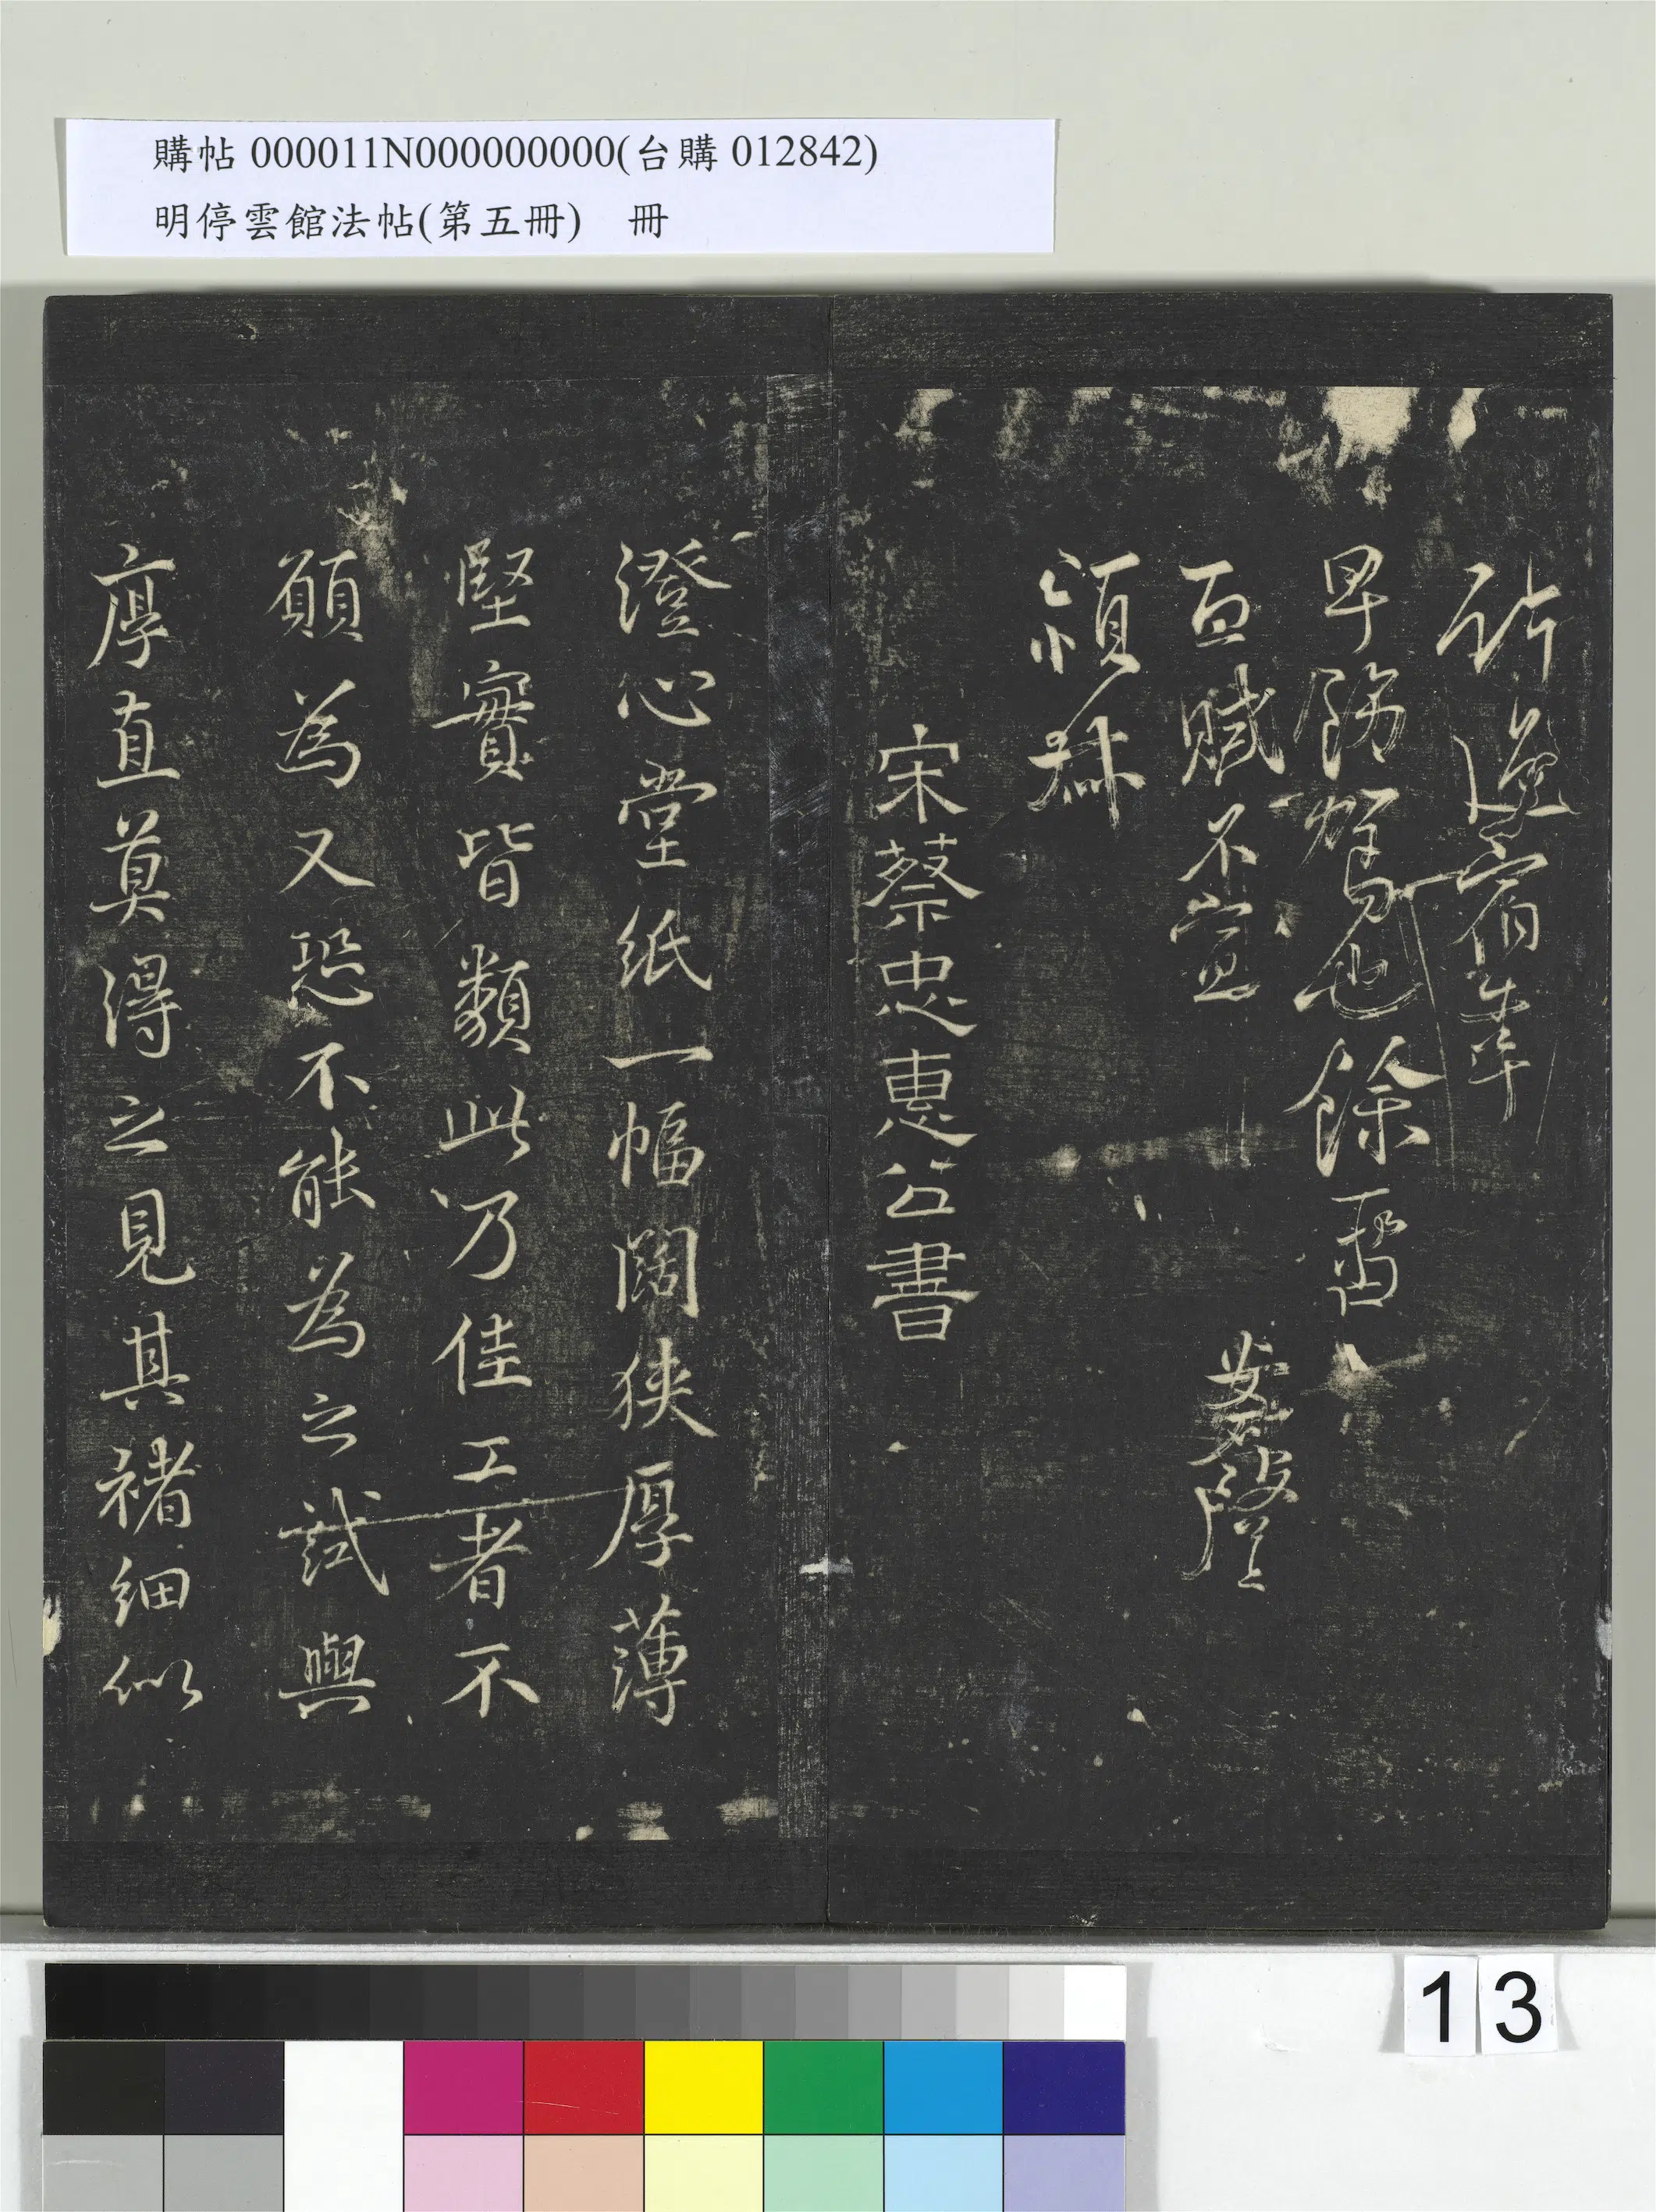 購帖 000011N000000000(台購 012842)
明停雲館法帖(第五冊) 冊
早飭駕也餘留
面賦不宣
穎叔
宋蔡忠惠公書
澄心堂紙一幅闊狹厚薄
堅實皆類此乃佳工者不
願為又恐不能為之試與
厚直莫得之見其楮細似
13